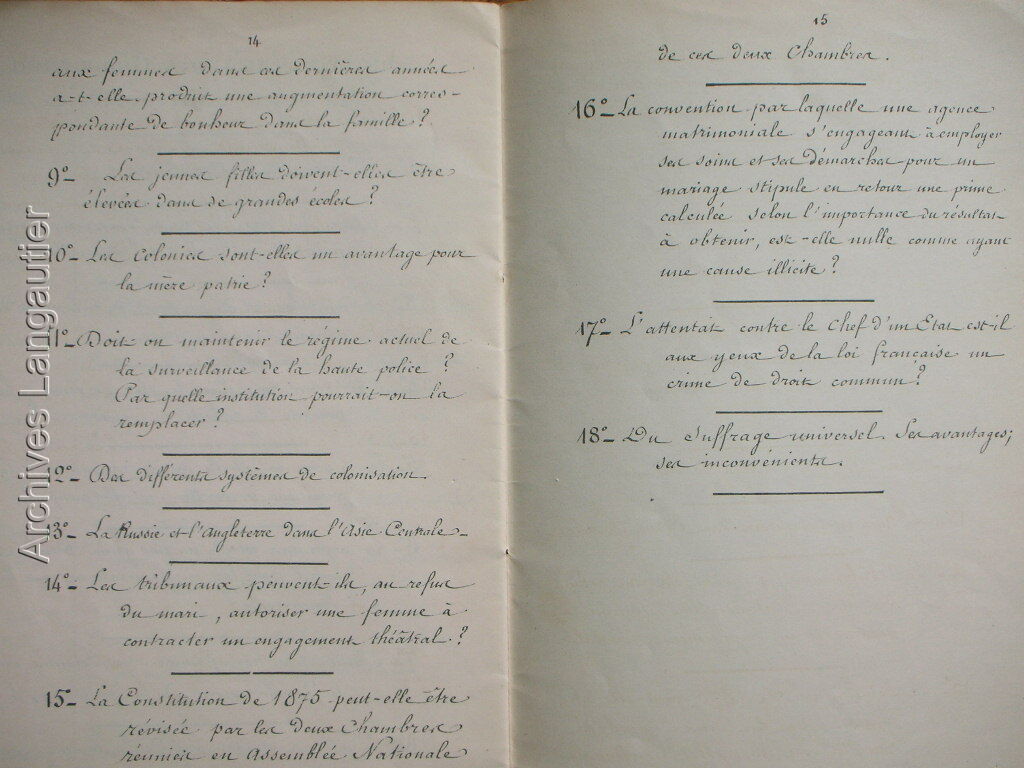 14
aux femmes dans ces dernières années
a-t-elle produit une augmentation corres-
pondante de bonheur dans la famille ?
9°_ Les jeunes filles doivent-elles être
élevées dans de grandes écoles ?
10°_ Les colonies sont-elles un avantage pour
la mère patrie ?
11°_ Doit on maintenir le régime actuel de
la surveillance de la haute police ?
Par quelle institution pourrait-on la
remplacer ?
12°_ Des différents systèmes de colonisation.
13°_ La Russie et l'Angleterre dans l'Asie Centrale_
14°_ Les tribunaux peuvent-ils, au refus
du mari, autoriser une femme à
contracter un engagement théâtral ?
15°_ La Constitution de 1875 peut-elle être
révisée par les deux Chambres
réunies en Assemblée Nationale
15
de ces deux Chambres.
16°_ La convention par laquelle une agence
matrimoniale s'engageant à employer
ses soins et ses démarches pour un
mariage stipule en retour une prime
calculée selon l'importance du résultat
à obtenir, est-elle nulle comme ayant
une cause illicite ?
17°_ L'attentat contre le Chef d'un Etat est-il
aux yeux de la loi française un
crime de droit commun ?
18°_ Du Suffrage universel. Ses avantages;
ses inconvénients.
Archives Langautier